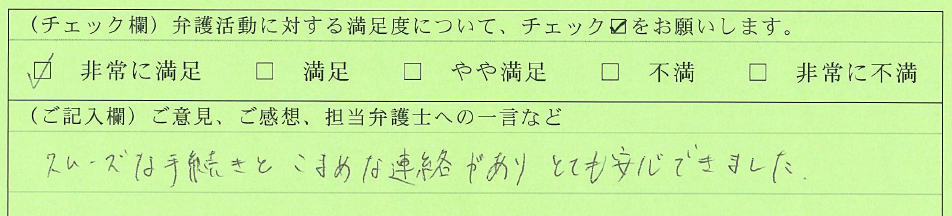 (チェック欄)弁護活動に対する満足度について、チェック☑をお願いします。
☑ 非常に満足 □ 満足 □ やや満足 □ 不満 □ 非常に不満
(ご記入欄)ご意見、ご感想、担当弁護士への一言など
スムーズな手続きと こまめな連絡があり とても安心できました.